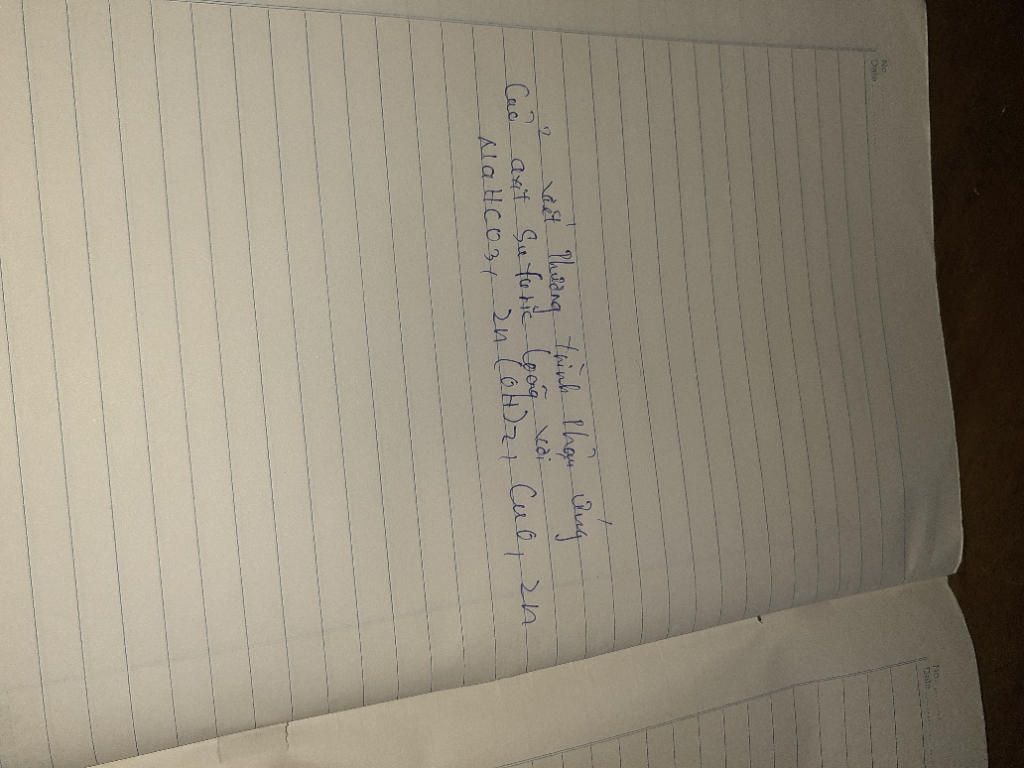 viết Phương trình Phản ứng
Của axit Sulfuric loãng với
NaHCO3, Zn(OH)2, CuO, Zn
No.
Date
No.
Date